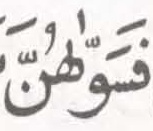 فَسَوَّىٰهُنَّ